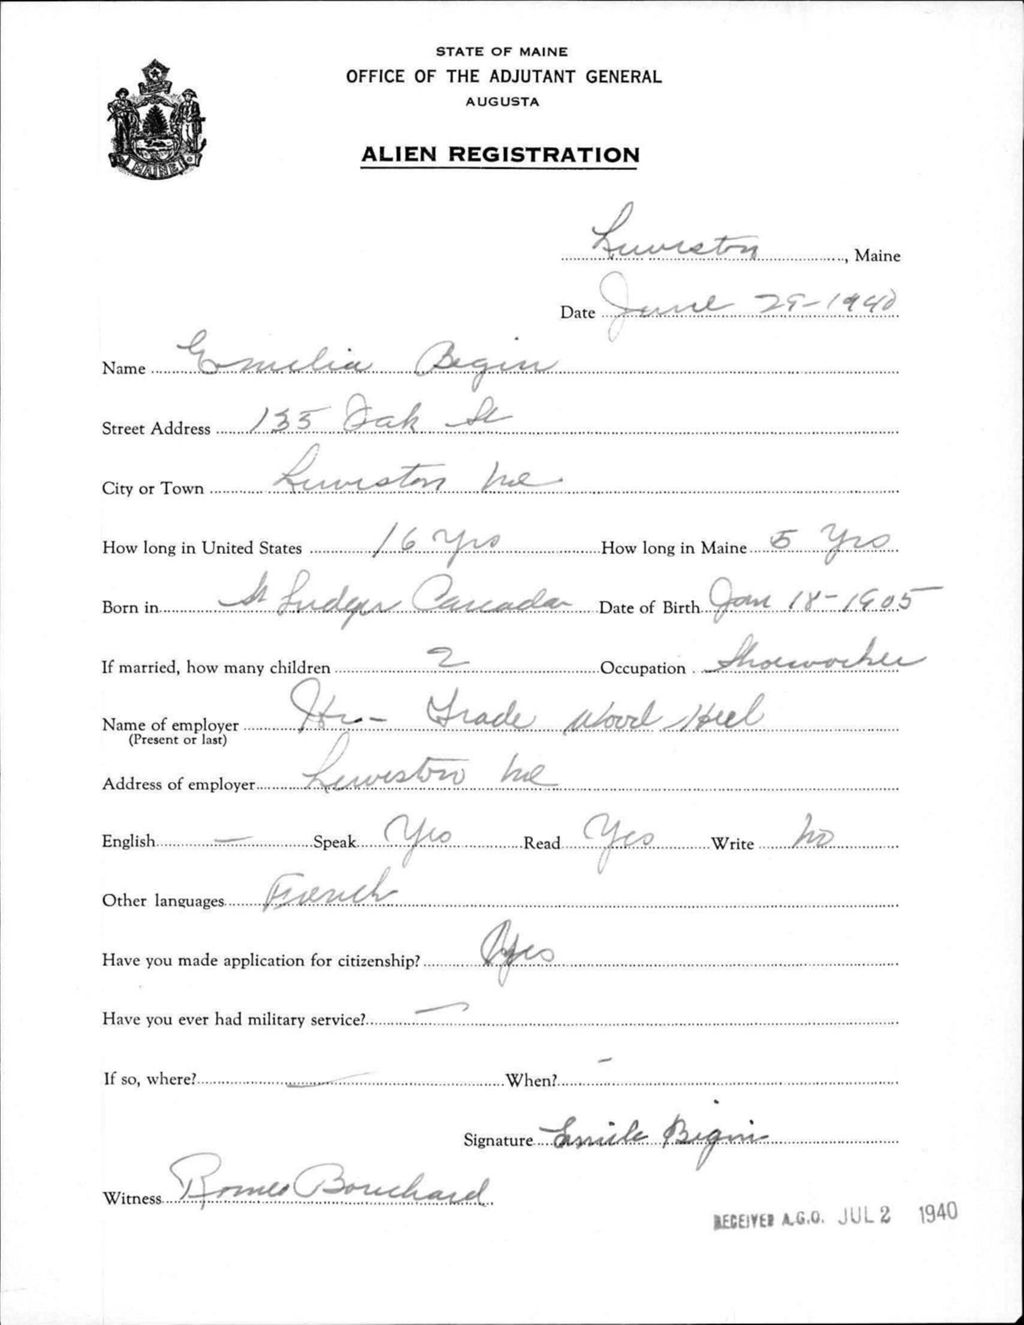 STATE OF MAINE
OFFICE OF THE ADJUTANT GENERAL
AUGUSTA
ALIEN REGISTRATION
MAINE
Lewiston, Maine
Date June 29-1940
Name Emelia Begin
Street Address 135 Oak St
City or Town Lewiston Me
How long in United States 16 Yrs How long in Maine 5 Yrs
Born in St Ludger Canada Date of Birth Jan 18-1905
If married, how many children 2 Occupation Shoeworker
Name of employer - Grade Wood Heel
(Present or last)
Address of employer Lewiston Me
English - Speak Yes Read Yes Write No
Other languages French
Have you made application for citizenship? Yes
Have you ever had military service? -
If so, where? - When? -
Signature Emile Begin
Witness Romeo Bouchard
RECEIVED A.G.O. JUL 2 1940